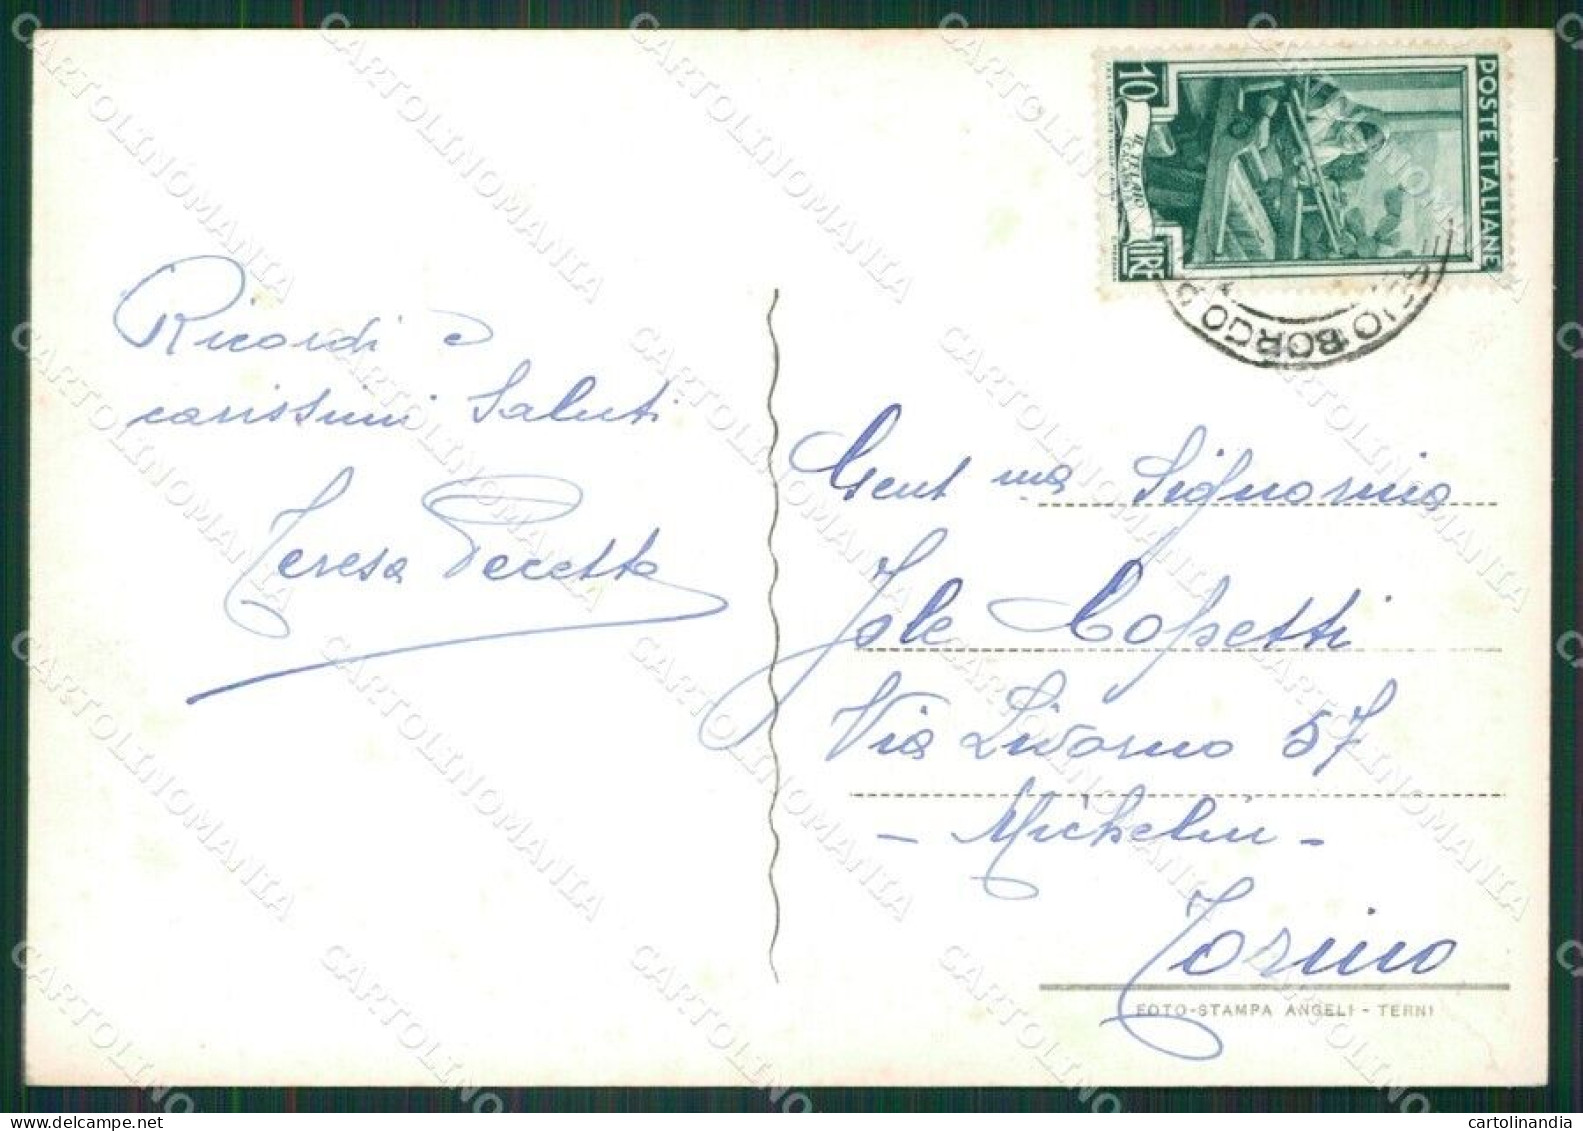 Ricordi e
carissimi Saluti
Teresa Pecetta
10
LIRE
POSTE ITALIANE
BORGO
Gent ma Signorina
Jole Cossetti
Via Livorno 57
- Michelin -
Torino
FOTO-STAMPA ANGELI - TERNI
CARTOLINOMANIA
cartolinandia